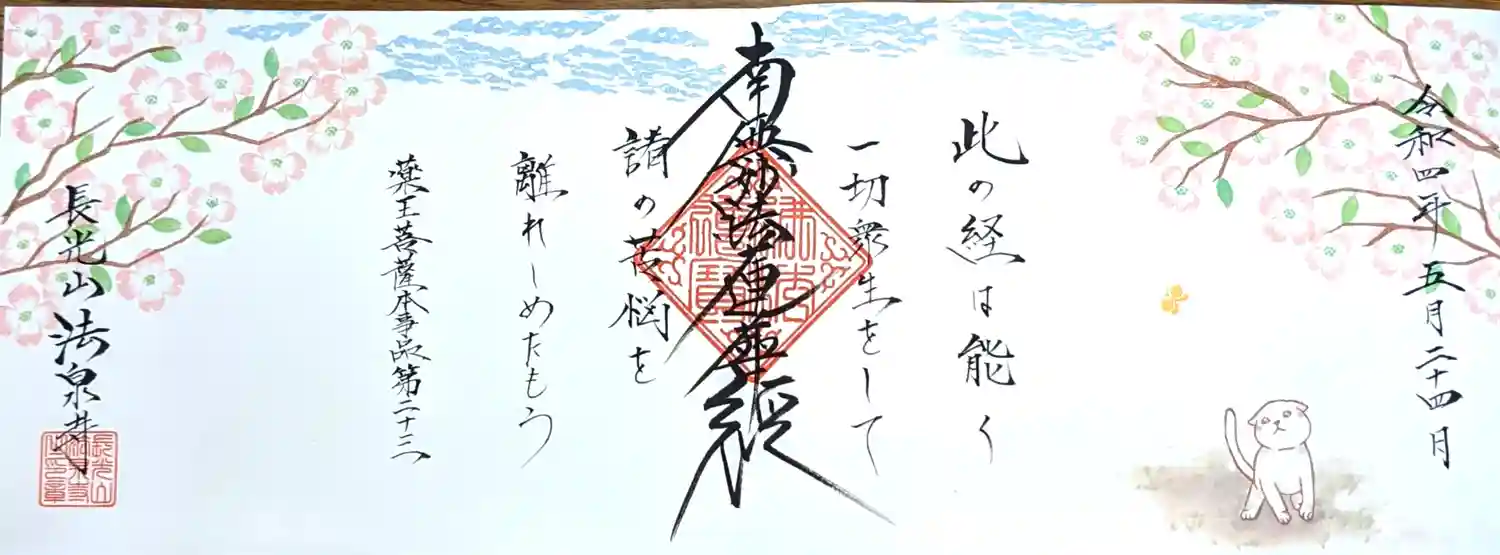 令和四年 五月二十四日
此の経は能く
一切衆生をして
南無妙法蓮華経
諸の苦悩を
離れしめたもう
薬王菩薩本事品第二十三
長光山 法泉寺